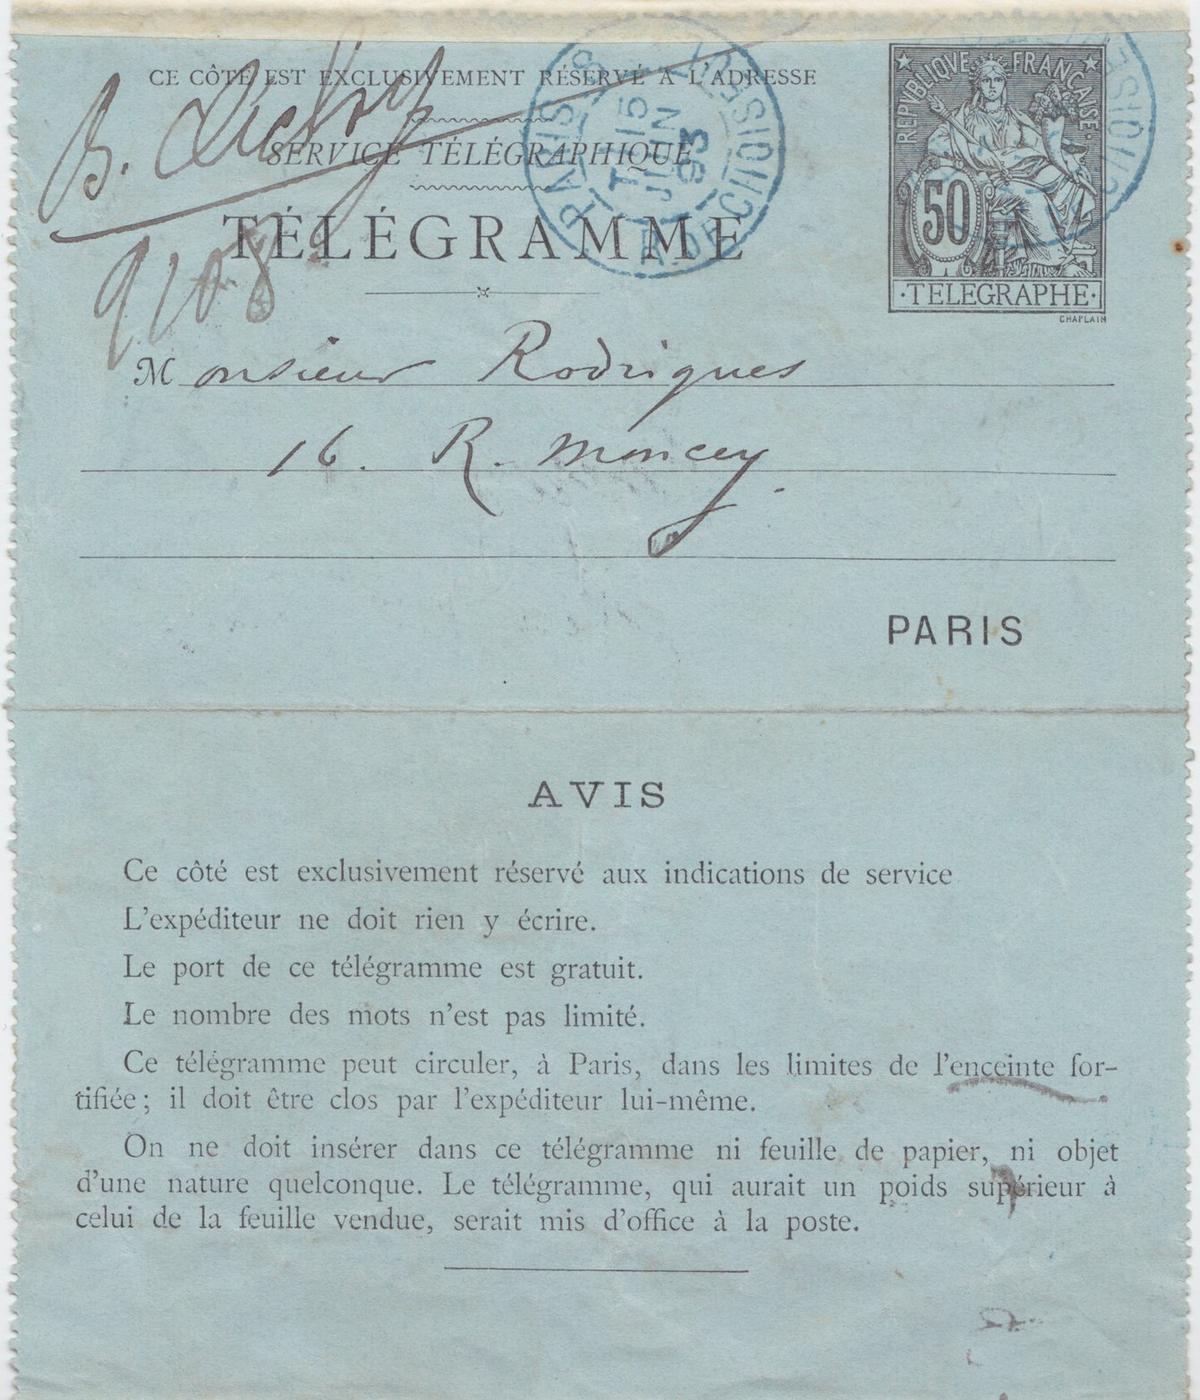 CE CÔTÉ EST EXCLUSIVEMENT RÉSERVÉ A L'ADRESSE
SERVICE TÉLÉGRAPHIQUE
TÉLÉGRAMME
B.
9108
PARIS
15
JUIN
93
R. DE CHOISEUL
REPVBLIQVE FRANÇAISE
50
·TELEGRAPHE·
CHAPLAIN
Monsieur Rodrigues
16. R. Moncey.
PARIS
AVIS
Ce côté est exclusivement réservé aux indications de service
L'expéditeur ne doit rien y écrire.
Le port de ce télégramme est gratuit.
Le nombre des mots n'est pas limité.
Ce télégramme peut circuler, à Paris, dans les limites de l'enceinte for-
tifiée; il doit être clos par l'expéditeur lui-même.
On ne doit insérer dans ce télégramme ni feuille de papier, ni objet
d'une nature quelconque. Le télégramme, qui aurait un poids supérieur à
celui de la feuille vendue, serait mis d'office à la poste.